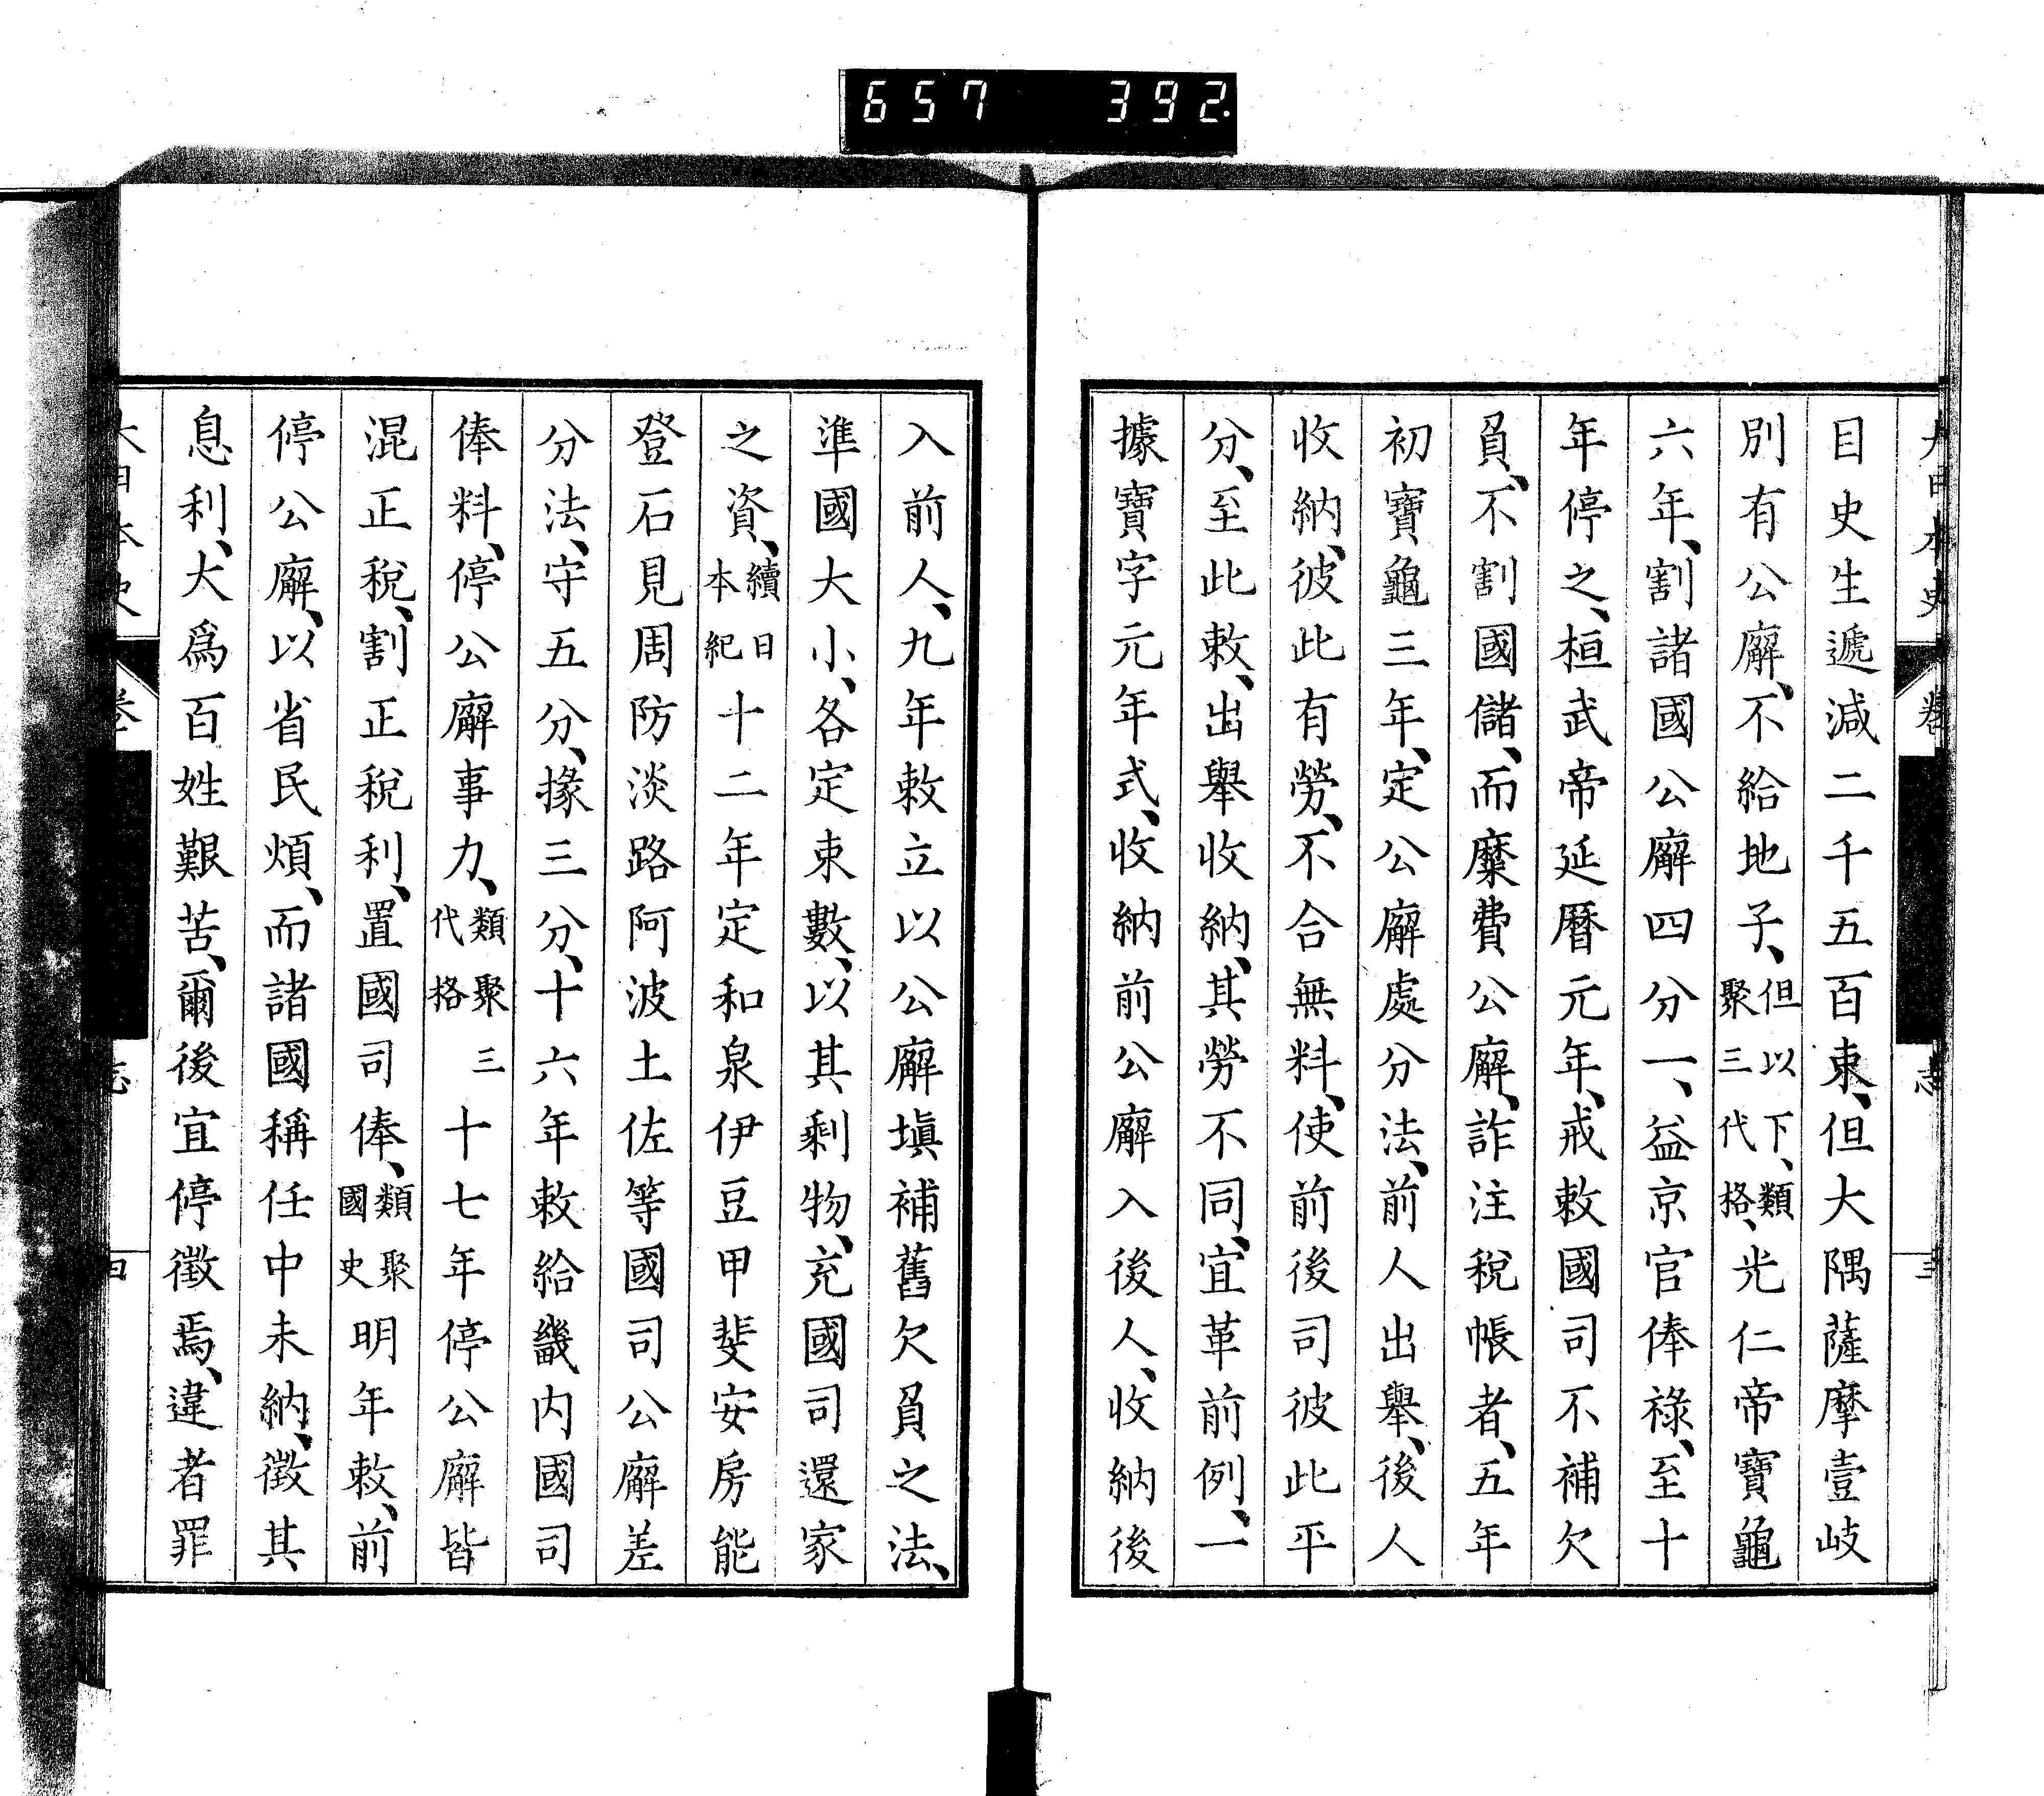 657 392.
大日本史 卷 志 三
目史生遞減二千五百束、但大隅薩摩壹岐
別有公廨、不給地子、但以下、類聚三代格、光仁帝寶龜
六年、割諸國公廨四分一、益京官俸祿、至十
年停之、桓武帝延曆元年、戒敕國司不補欠
負、不割國儲、而糜費公廨、詐注稅帳者、五年
初寶龜三年、定公廨處分法、前人出舉、後人
收納、彼此有勞、不合無料、使前後司彼此平
分、至此敕、出舉收納、其勞不同、宜革前例、一
據寶字元年式、收納前公廨入後人、收納後
入前人、九年敕立以公廨塡補舊欠負之法、
準國大小、各定束數、以其剩物、充國司還家
之資、續日本紀十二年定和泉伊豆甲斐安房能
登石見周防淡路阿波土佐等國司公廨差
分法、守五分、掾三分、十六年敕給畿内國司
俸料、停公廨事力、類聚三代格十七年停公廨皆
混正稅、割正稅利、置國司俸、類聚國史明年敕、前
停公廨、以省民煩、而諸國稱任中未納、徵其
息利、大爲百姓艱苦、爾後宜停徵焉、違者罪
大日本史 卷 志 四